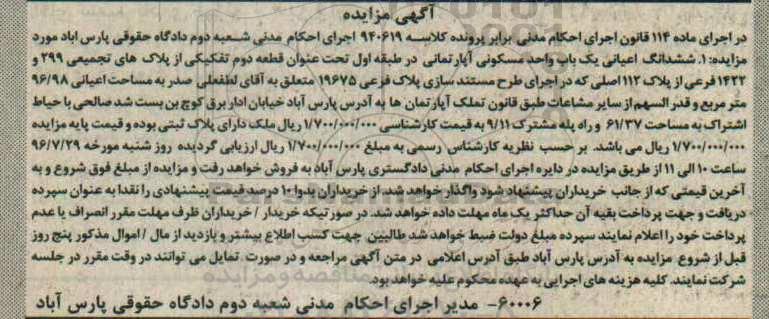 آگهی مزایده
در اجرای ماده ۱۱۴ قانون اجرای احکام مدنی برابر پرونده کلاسه ۹۴۰۶۱۹ اجرای احکام مدنی شعبه دوم دادگاه حقوقی پارس اباد مورد
مزایده: ۱. ششدانگ اعیانی یک باب واحد مسکونی آپارتمانی در طبقه اول تحت عنوان قطعه دوم تفکیکی از پلاک های تجمیعی ۲۹۹ و
۱۴۲۲ فرعی از پلاک ۱۱۲ اصلی که در اجرای طرح مستند سازی پلاک فرعی ۱۹۶۷۵ متعلق به آقای لطفعلی صدر به مساحت اعیانی ۹۶/۹۸
متر مربع و قدر السهم از سایر مشاعات طبق قانون تملک آپارتمان ها به آدرس پارس آباد خیابان ادار برق کوچ بن بست شد صالحی با حیاط
اشتراک به مساحت ۶۱/۳۷ و راه پله مشترک ۹/۱۱ به قیمت کارشناسی ۱/۷۰۰/۰۰۰/۰۰۰ ریال ملک دارای پلاک ثبتی بوده و قیمت پایه مزایده
۱/۷۰۰/۰۰۰/۰۰۰ ریال می باشد. بر حسب نظریه کارشناس رسمی به مبلغ ۱/۷۰۰/۰۰۰/۰۰۰ ریال ارزیابی گردیده روز شنبه مورخه ۹۶/۷/۲۹
ساعت ۱۰ الی ۱۱ از طریق مزایده در دایره اجرای احکام مدنی دادگستری پارس آباد به فروش خواهد رفت و مزایده از مبلغ فوق شروع و به
آخرین قیمتی که از جانب خریداران پیشنهاد شود واگذار خواهد شد. از خریداران بدوا ۱۰ درصد قیمت پیشنهادی را نقدا به عنوان سپرده
دریافت و جهت پرداخت بقیه آن حداکثر یک ماه مهلت داده خواهد شد. در صورتیکه خریدار / خریداران ظرف مهلت مقرر انصراف یا عدم
پرداخت خود را اعلام نمایند سپرده مبلغ دولت ضبط خواهد شد طالبین جهت کسب اطلاع بیشتر و بازدید از مال / اموال مذکور پنج روز
قبل از شروع مزایده به آدرس پارس آباد طبق آدرس اعلامی در متن آگهی مراجعه و در صورت تمایل می توانند در وقت مقرر در جلسه
شرکت نمایند. کلیه هزینه های اجرایی به عهده محکوم علیه خواهد بود.
۶۰۰۰۶- مدیر اجرای احکام مدنی شعبه دوم دادگاه حقوقی پارس آباد